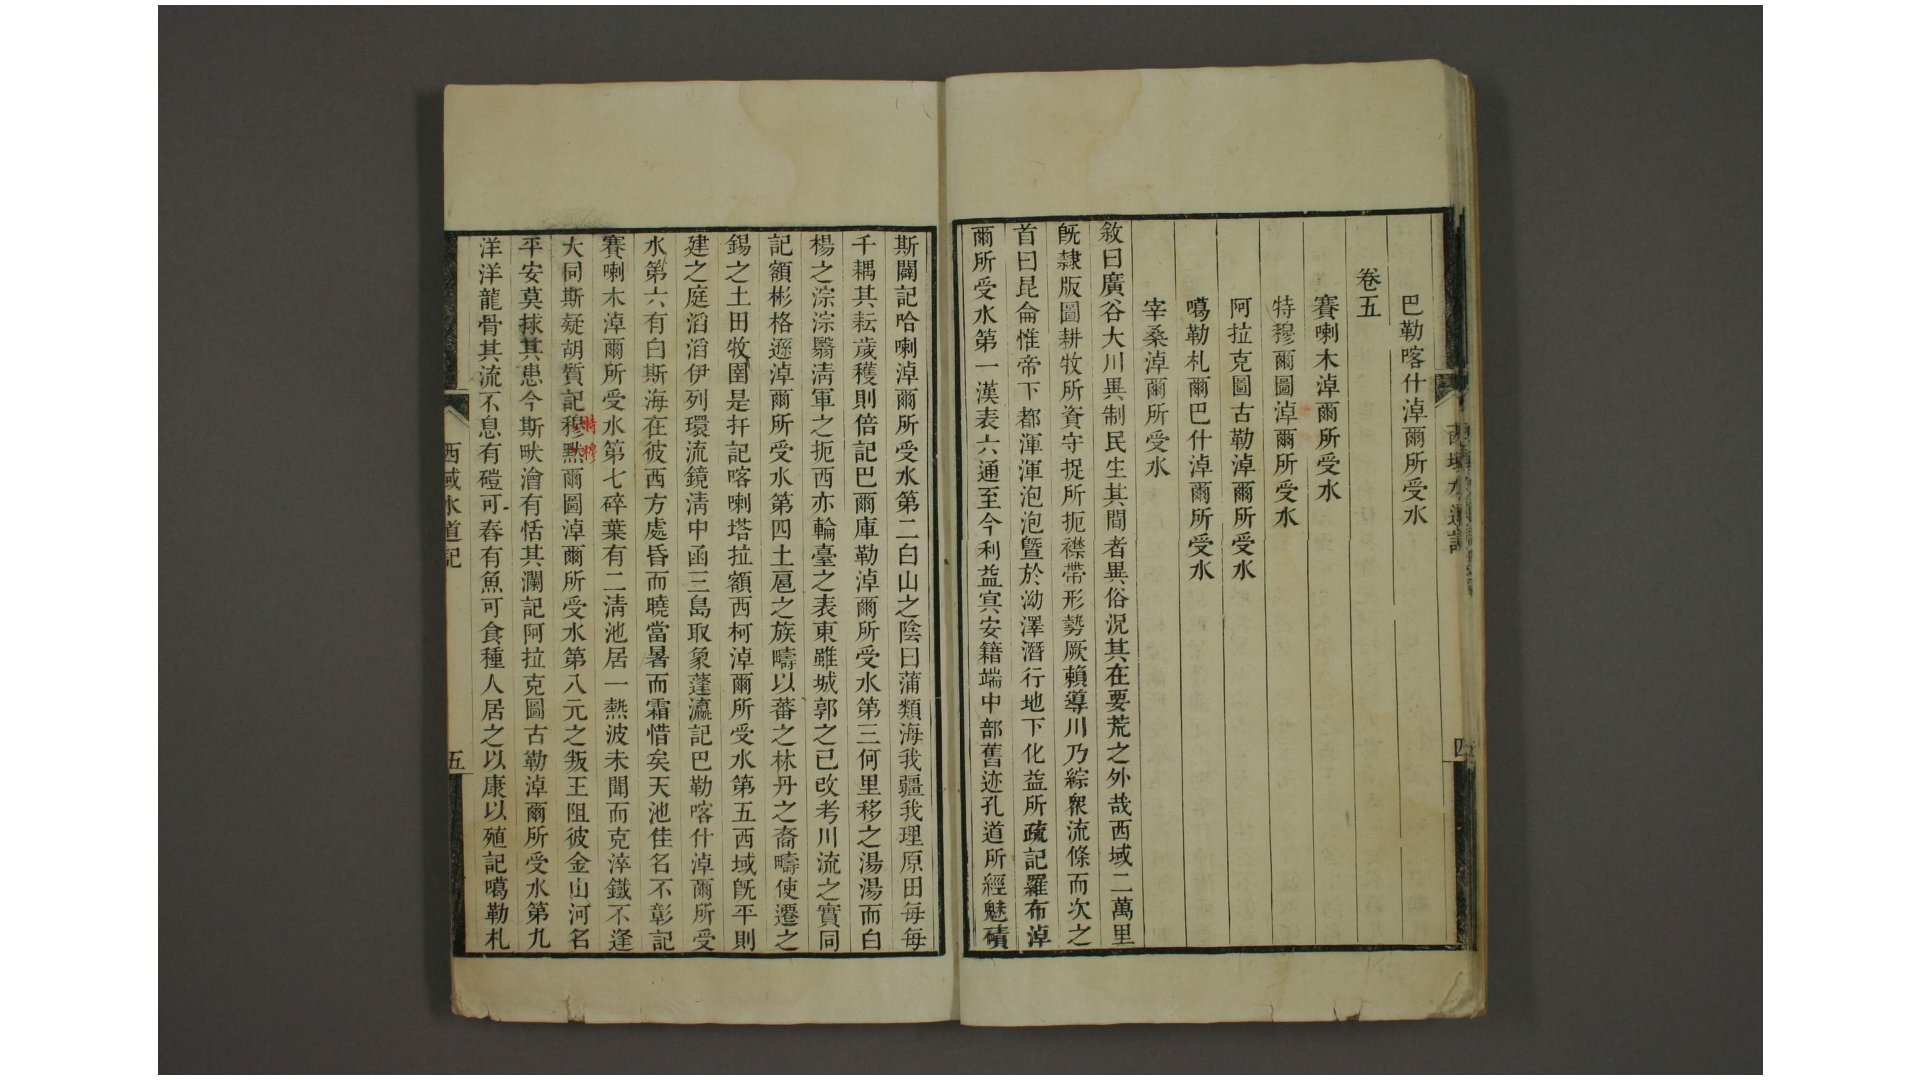 巴勒喀什淖爾所受水
卷五
賽喇木淖爾所受水
特穆爾圖淖爾所受水
阿拉克圖古勒淖爾所受水
噶勒札爾巴什淖爾所受水
宰桑淖爾所受水
敘曰廣谷大川異制民生其間者異俗況其在要荒之外哉西域二萬里
旣隸版圖耕牧所資守捉所扼襟帶形勢厥賴導川乃綜衆流條而次之
首曰昆侖惟帝下都渾渾泡泡曁於泑澤潛行地下化益所疏記羅布淖
爾所受水第一漢表六通至今利益寘安籍端中部舊迹孔道所經魅磧
西域水道記
四
斯闢記哈喇淖爾所受水第二白山之陰曰蒲類海我疆我理原田每每
千耦其耘歲穫則倍記巴爾庫勒淖爾所受水第三何里移之湯湯而白
楊之淙淙翳淸軍之扼西亦輪臺之表東雖城郭之已改考川流之實同
記額彬格遜淖爾所受水第四土扈之族疇以蕃之林丹之裔疇使遷之
錫之土田牧圉是扞記喀喇塔拉額西柯淖爾所受水第五西域旣平則
建之庭滔滔伊列環流鏡淸中函三島取象蓬瀛記巴勒喀什淖爾所受
水第六有白斯海在彼西方處昏而曉當暑而霜惜矣天池佳名不彰記
賽喇木淖爾所受水第七碎葉有二淸池居一熱波未聞而克淬鐵不逢
大伺斯疑胡質記穆默爾圖淖爾所受水第八元之叛王阻彼金山河名
特穆
平安莫捄其患今斯畎澮有恬其瀾記阿拉克圖古勒淖爾所受水第九
洋洋龍骨其流不息有磑可舂有魚可食種人居之以康以殖記噶勒札
西域水道記
五